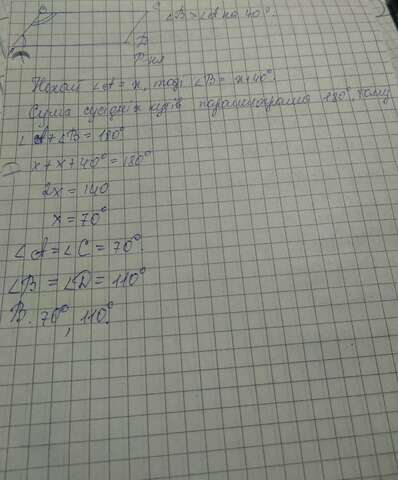 C ∠B > ∠A на 40°.
D
Р-ня
Нехай ∠A = x, тоді ∠B = x+40°.
Сума сусідніх кутів паралелограма 180°, тому
∠A+∠B = 180°
x + x + 40° = 180°
2x = 140
x = 70°
∠A = ∠C = 70°.
∠B = ∠D = 110°
В. 70°, 110°.